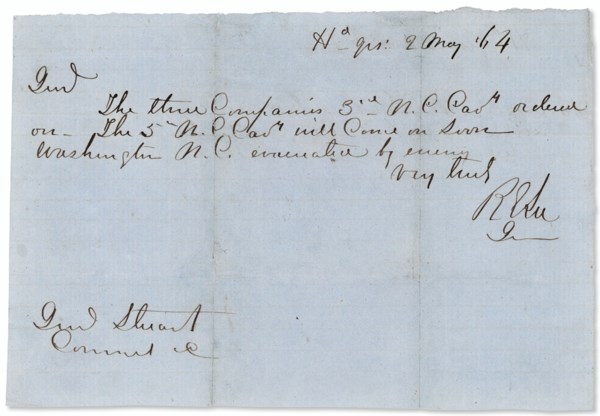 Hd qrs: 2 May '64
Genl
The three Companies 3rd N. C. Cavy ordered
on - The 5th N. C. Cavy will Come on Soon
Washington N. C. evacuated by enemy
Very truly
R E Lee
Genl Stuart